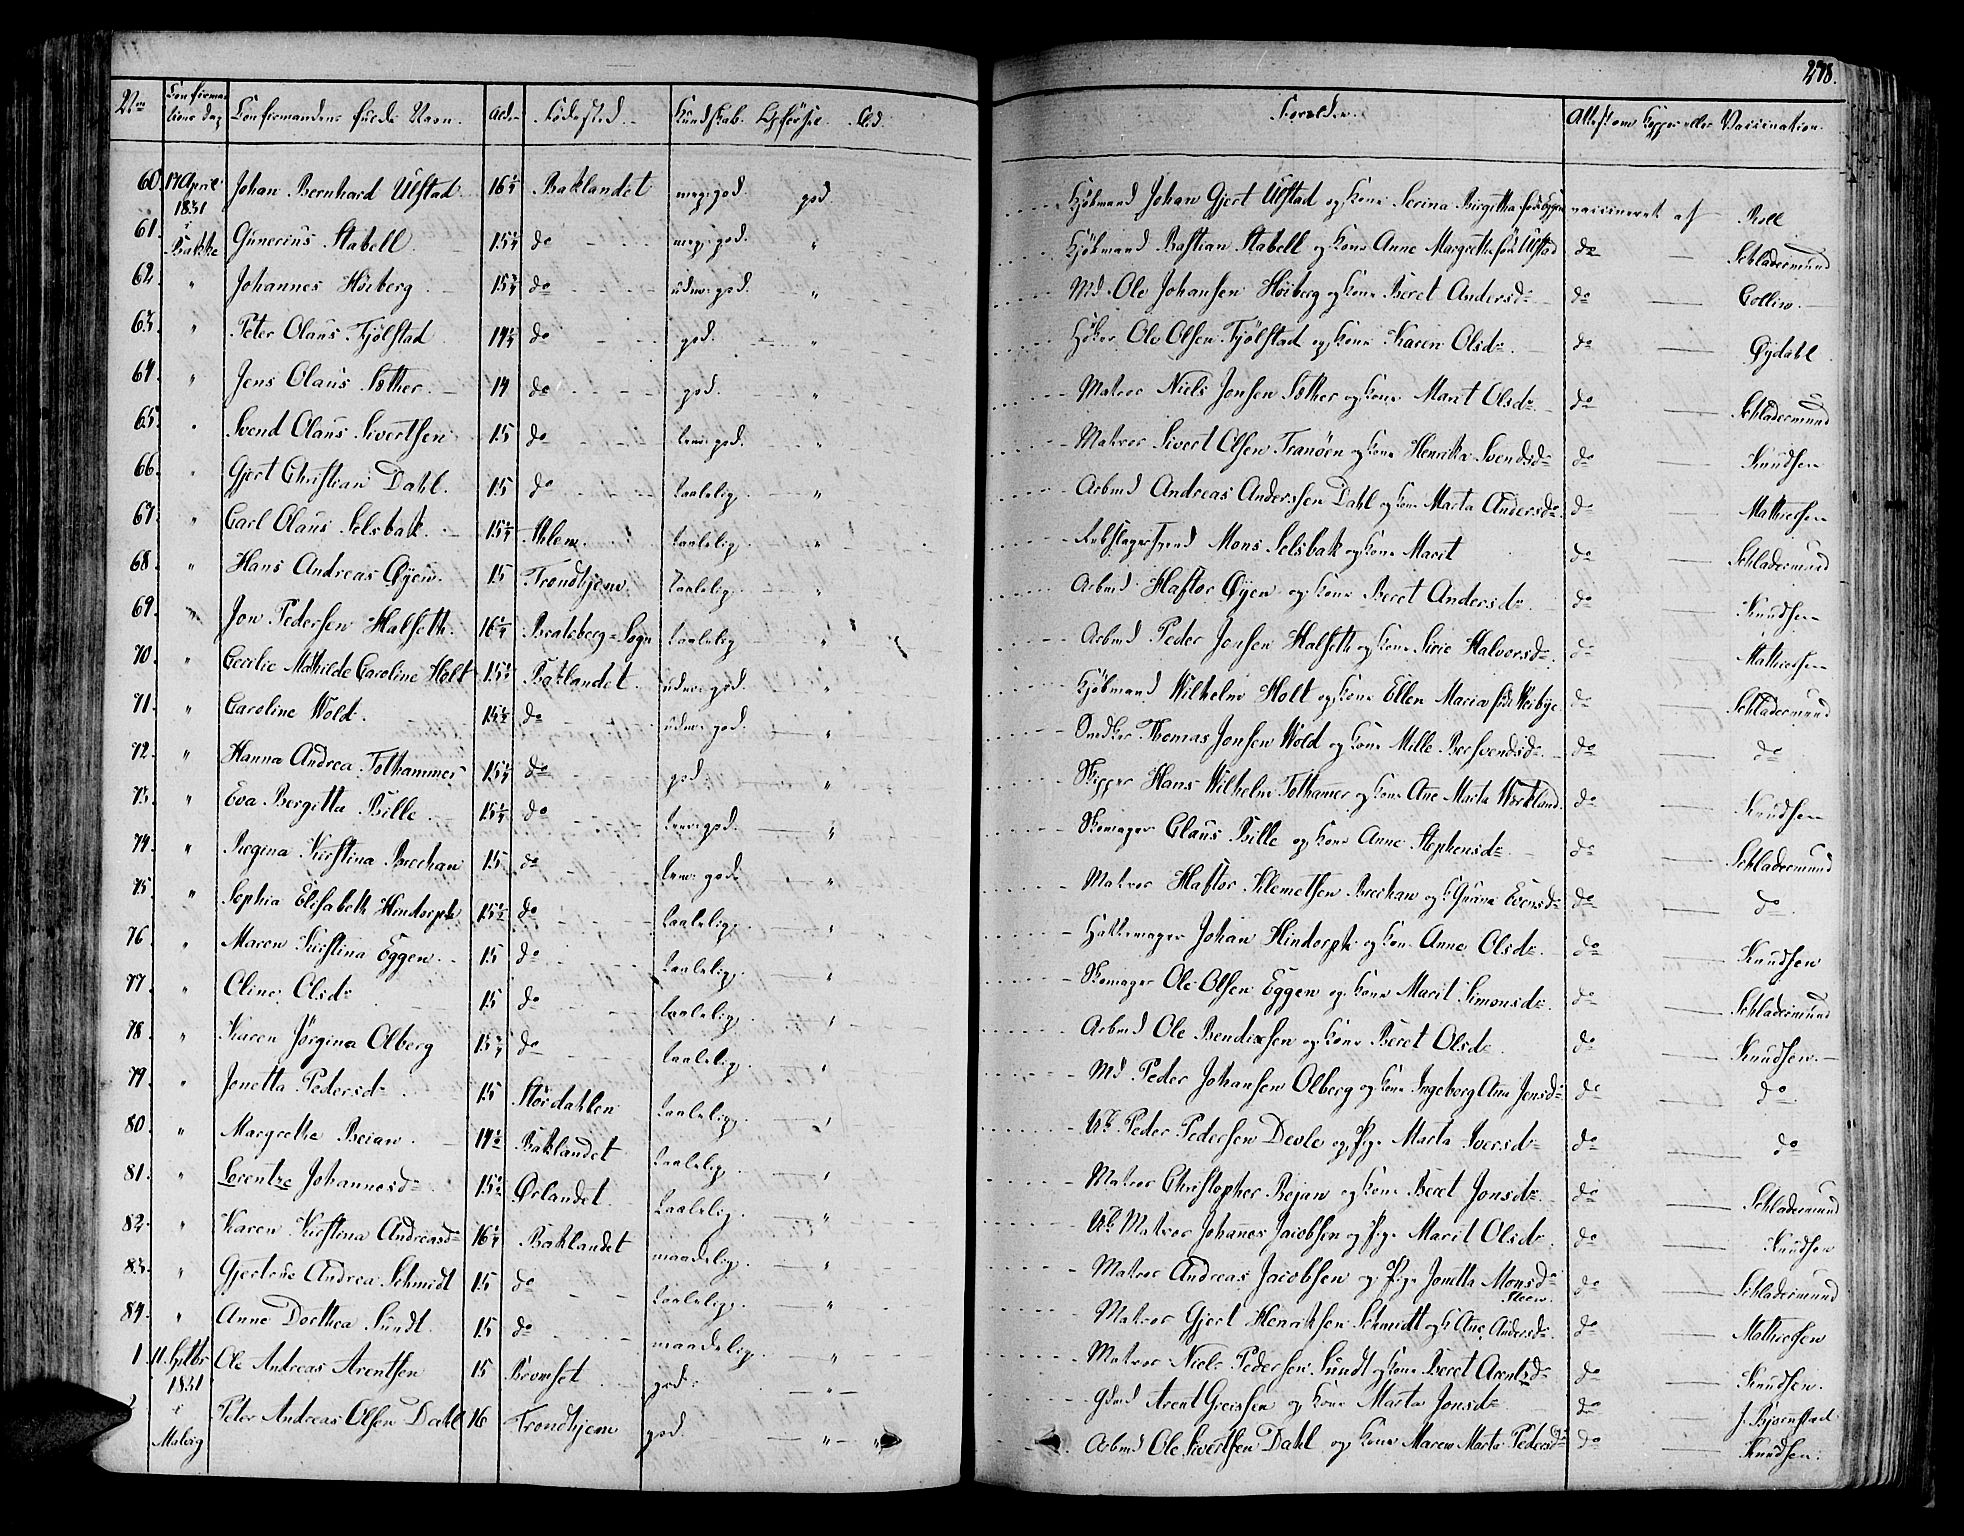 278.
No Confirma- Confirmandens fulde Navn. Alder Fødested. Kundskab. Opførsel. Forældre. Attest om Kopper eller Vaccination.
tions Dag
60. 17 April Johan Bernhard Ulstad 16¼ Baklandet meg: god. god. Kjöbmand Johan Gjert Ulstad og Kone Serina Birgitha vaccineret af Roll
1831
61. Gunerius Stabell 15¼ do meg: god. " Kjöbmand Bastian Stabell og Kone Anne Margrethe född Ulstad do — Schladermund
i Bakke
62. " Johannes Höiberg do udm: god. " Md Ole Johansen Höiberg og Kone Beret Andersdr do — Collin.
63. " Peter Olaus Fjölstad do god. " Höker Ole Olsen Fjölstad og Kone Karen Olsdr do — Öydahl
64. " Jens Olaus Sæther. 14 do god. " Matros Niels Jonsen Sæther og Kone Marit Olsdr do — Schladermund
65. " Svend Olaus Sivertsen 15 do god. " Matros Sivert Olsen Tranöen og Kone Henrika Svendsdr do — Knudsen
66. " Gjert Christian Dahl. 15 do taalelig. " Arbmd Andreas Anderssen Dahl og Kone Marta Andersdr do — Mathiesen
67. " Carl Olaus Selsbak 15¼ taalelig. " Mons Selsbak og Kone Marit do — Schladermund
68. " Hans Andreas Öyen. 15 Trondhjem. taalelig. " Arbmd Haftor Öyen og Kone Beret Andersdr do — Knudsen
69. " Jon Pedersen Halseth. 16¼ Bratsberg-Sogn taalelig " Arbmd Peder Jonsen Halseth og Kone Sirie Halvorsdr do — Mathiesen
70. " Cecilie Mathilde Caroline Holt 15¼ Baklandet. udm: god. " Kjöbmand Wilhelm Holt og Kone Ellen Maria do — Schladermund
71. " Caroline Wold. do udm: god. " Snedker Thomas Jonsen Wold og Kone Mille Bersvendsdr do — do
72. " Hanna Andrea Tolhammer 15¼ do god " Skipper Hans Wilhelm Tolhamer og Kone Ane Marta do — Knudsen
73. " Eva Bergitta Bille 15¼ do god. " Skomager Claus Bille og Kone Anne Stephensdr do — Schladermund
74. " Regina Kirstina Brechan 15 do god. " Matros Haftor Klemetsen Brechan og K. Evensdr do — do
75. " Sophia Elisabeth Hindorph 15½ do taalelig. " Hattemager Johan Hindorph og Kone Anne Olsdr do — Knudsen
76. " Maren Kirstina Eggen. 15 do taalelig. " Skomager Ole Olsen Eggen og Kone Marit Simonsdr do — Schladermund
77. " Oline Olsdr 15 do taalelig. " Arbmd Ole Bendixsen og Kone Beret Olsdr do — Knudsen.
78. " Karen Jörgina Olberg do taalelig. " Md Peder Johansen Olberg og Kone Ingeborg Ana Jensdr do — do.
79. " Jonetta Pedersdr 15 Stördahlen taalelig. " Uk: Peder Pedersen Devle og Pige Marta Iversdr do — do
80. " Margrethe Beian. 14½ Baklandet taalelig. " Matros Christopher Bejan og Kone Beret Jonsdr do — Schladermund
81. " Lorentze Johannesdr Ørlandet taalelig. " Uk: Matros Johanes Jacobsen og Pige Marit Olsdr. do — Knudsen
82. " Karen Kirstina Andreasdr 16¼ Baklandet maadelig. " Matros Andreas Jacobsen og Pige Jonetta Monsdr do — Schladermund
83. " Gjertrue Andrea Schmidt 15 do taalelig. " Matros Gjert Henriksen Schmidt og K. Ane Andersdr do — Mathiesen
84. " Anne Dorthea Sundt. 15 do maadelig. " Matros Niels Pedersen Sundt og Kone Beret Arentsdr do — Knudsen.
1. 11. Septbr Ole Andreas Arentsen 15 god. " Gdmd Arent Greissen og Kone Marta Jonsdr do — J. Bjørnstad
1831
2. i Peter Andreas Olsen Dahl 16 Trondhjem god. " Arbmd Ole Sivertsen Dahl og Kone Maren Marta Pedersdr do — Knudsen.
Malvig